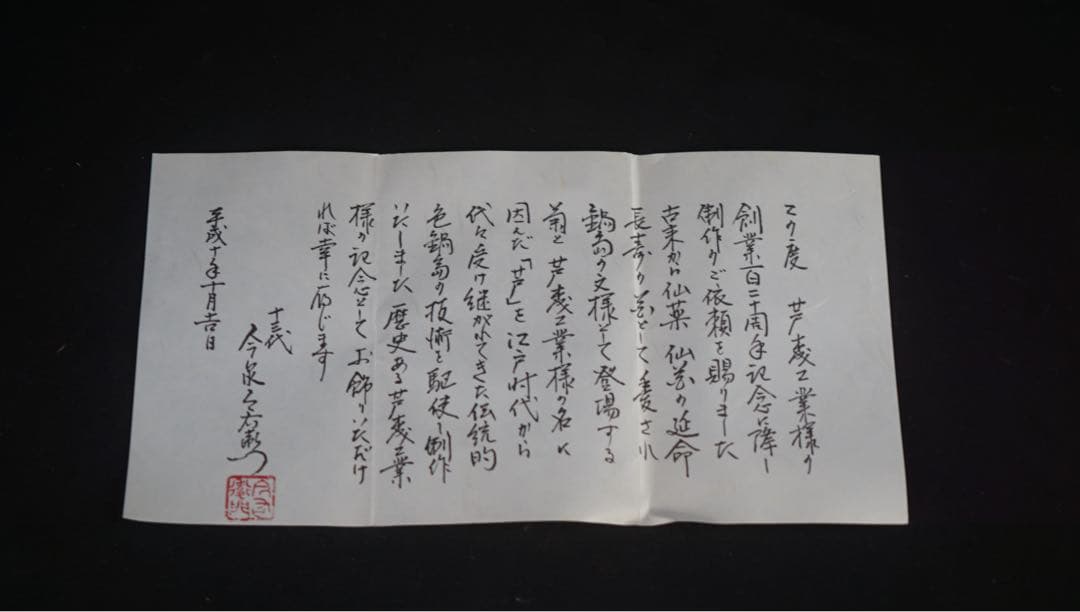 この度 芦森工業様の
創業百二十周年記念に際し
制作のご依頼を賜りました
古来から仙薬 仙花の延命
長寿の花として重愛され
鍋島の文様として登場する
菊と芦森工業様の名に
因んだ「芦」を江戸時代から
代々受け継がれてきた伝統的
色鍋島の技術を駆使し制作
いたしました 歴史ある芦森工業
様の記念として お飾りいただけ
れば幸に存じます
平成十年十月吉日
十三代
今泉今右衛門